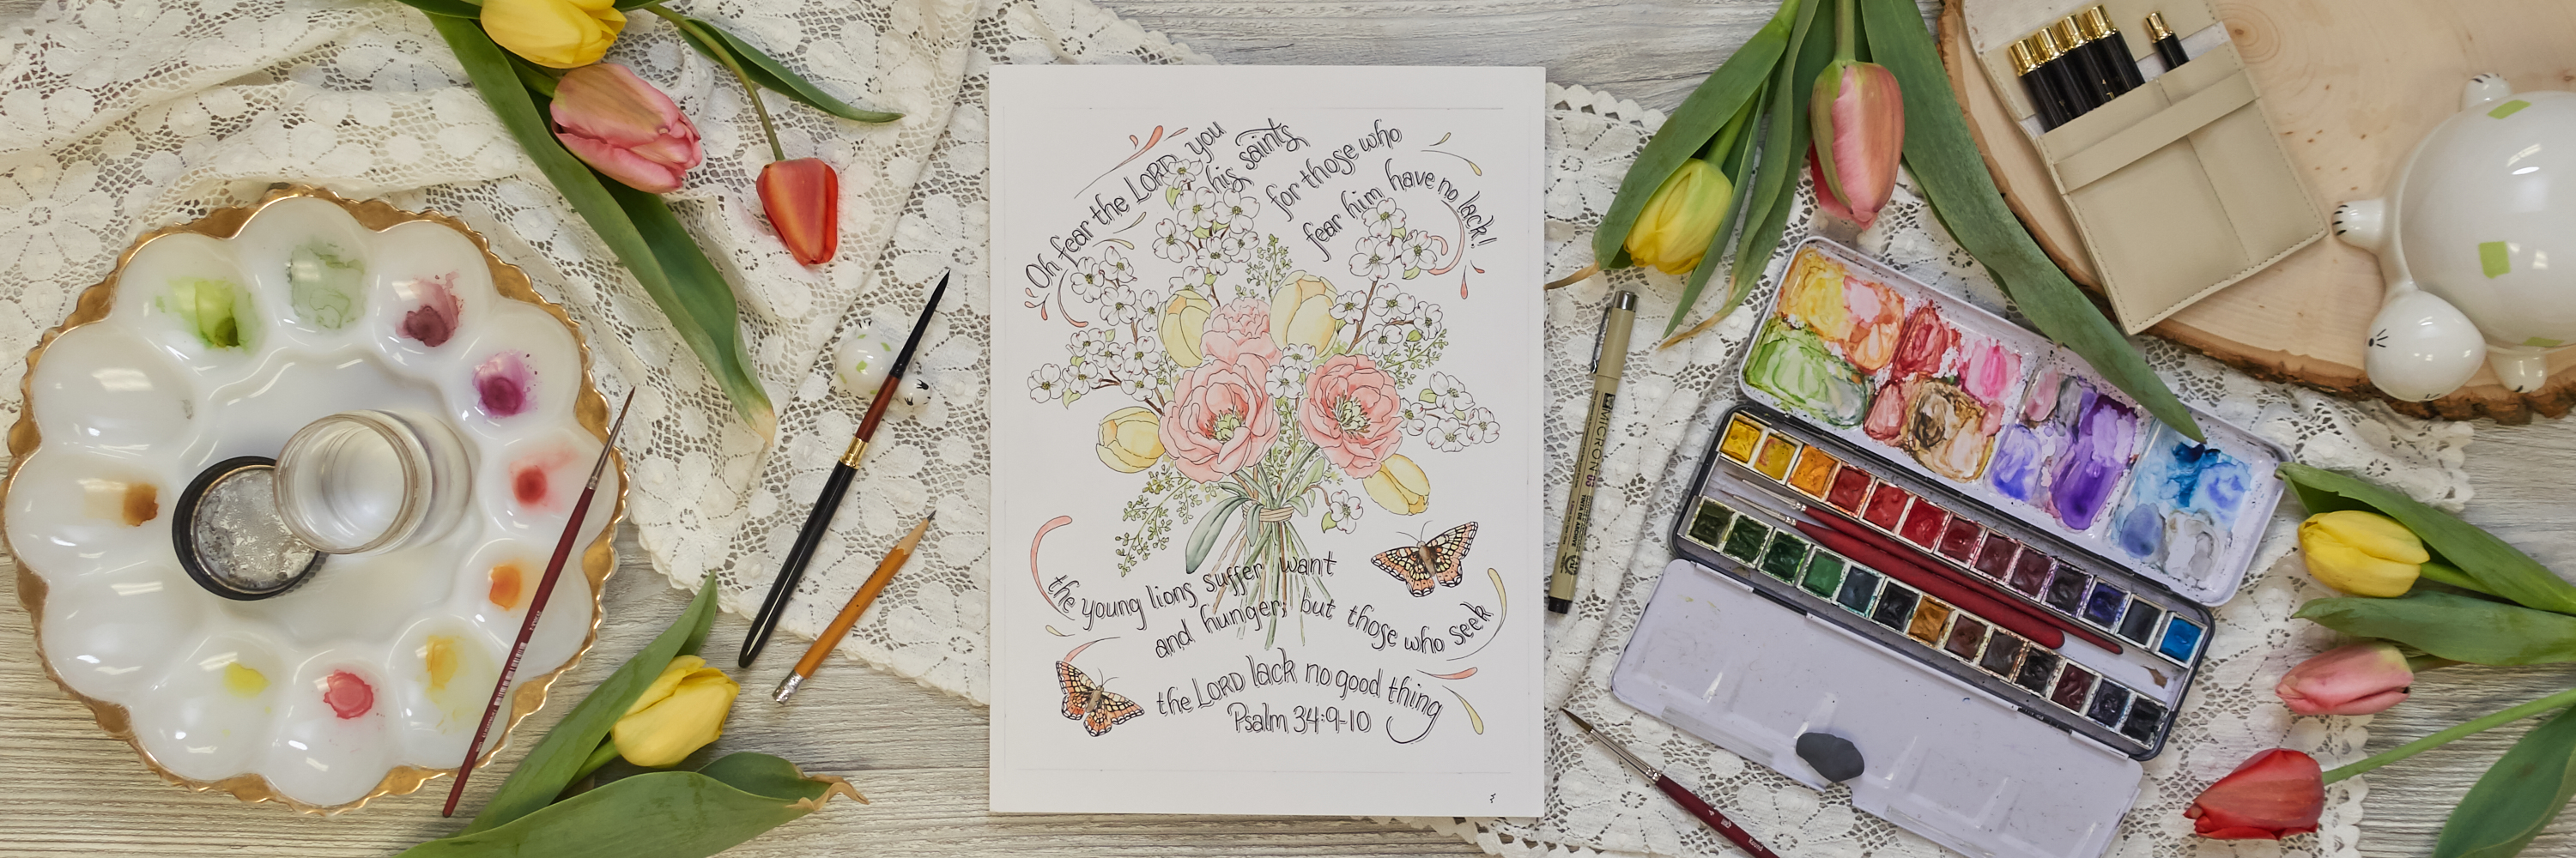 Oh fear the LORD you
his saints
for those who
fear him have no lack!
the young lions suffer want
and hunger; but those who seek
the LORD lack no good thing
Psalm 34:9-10
MICRON 03